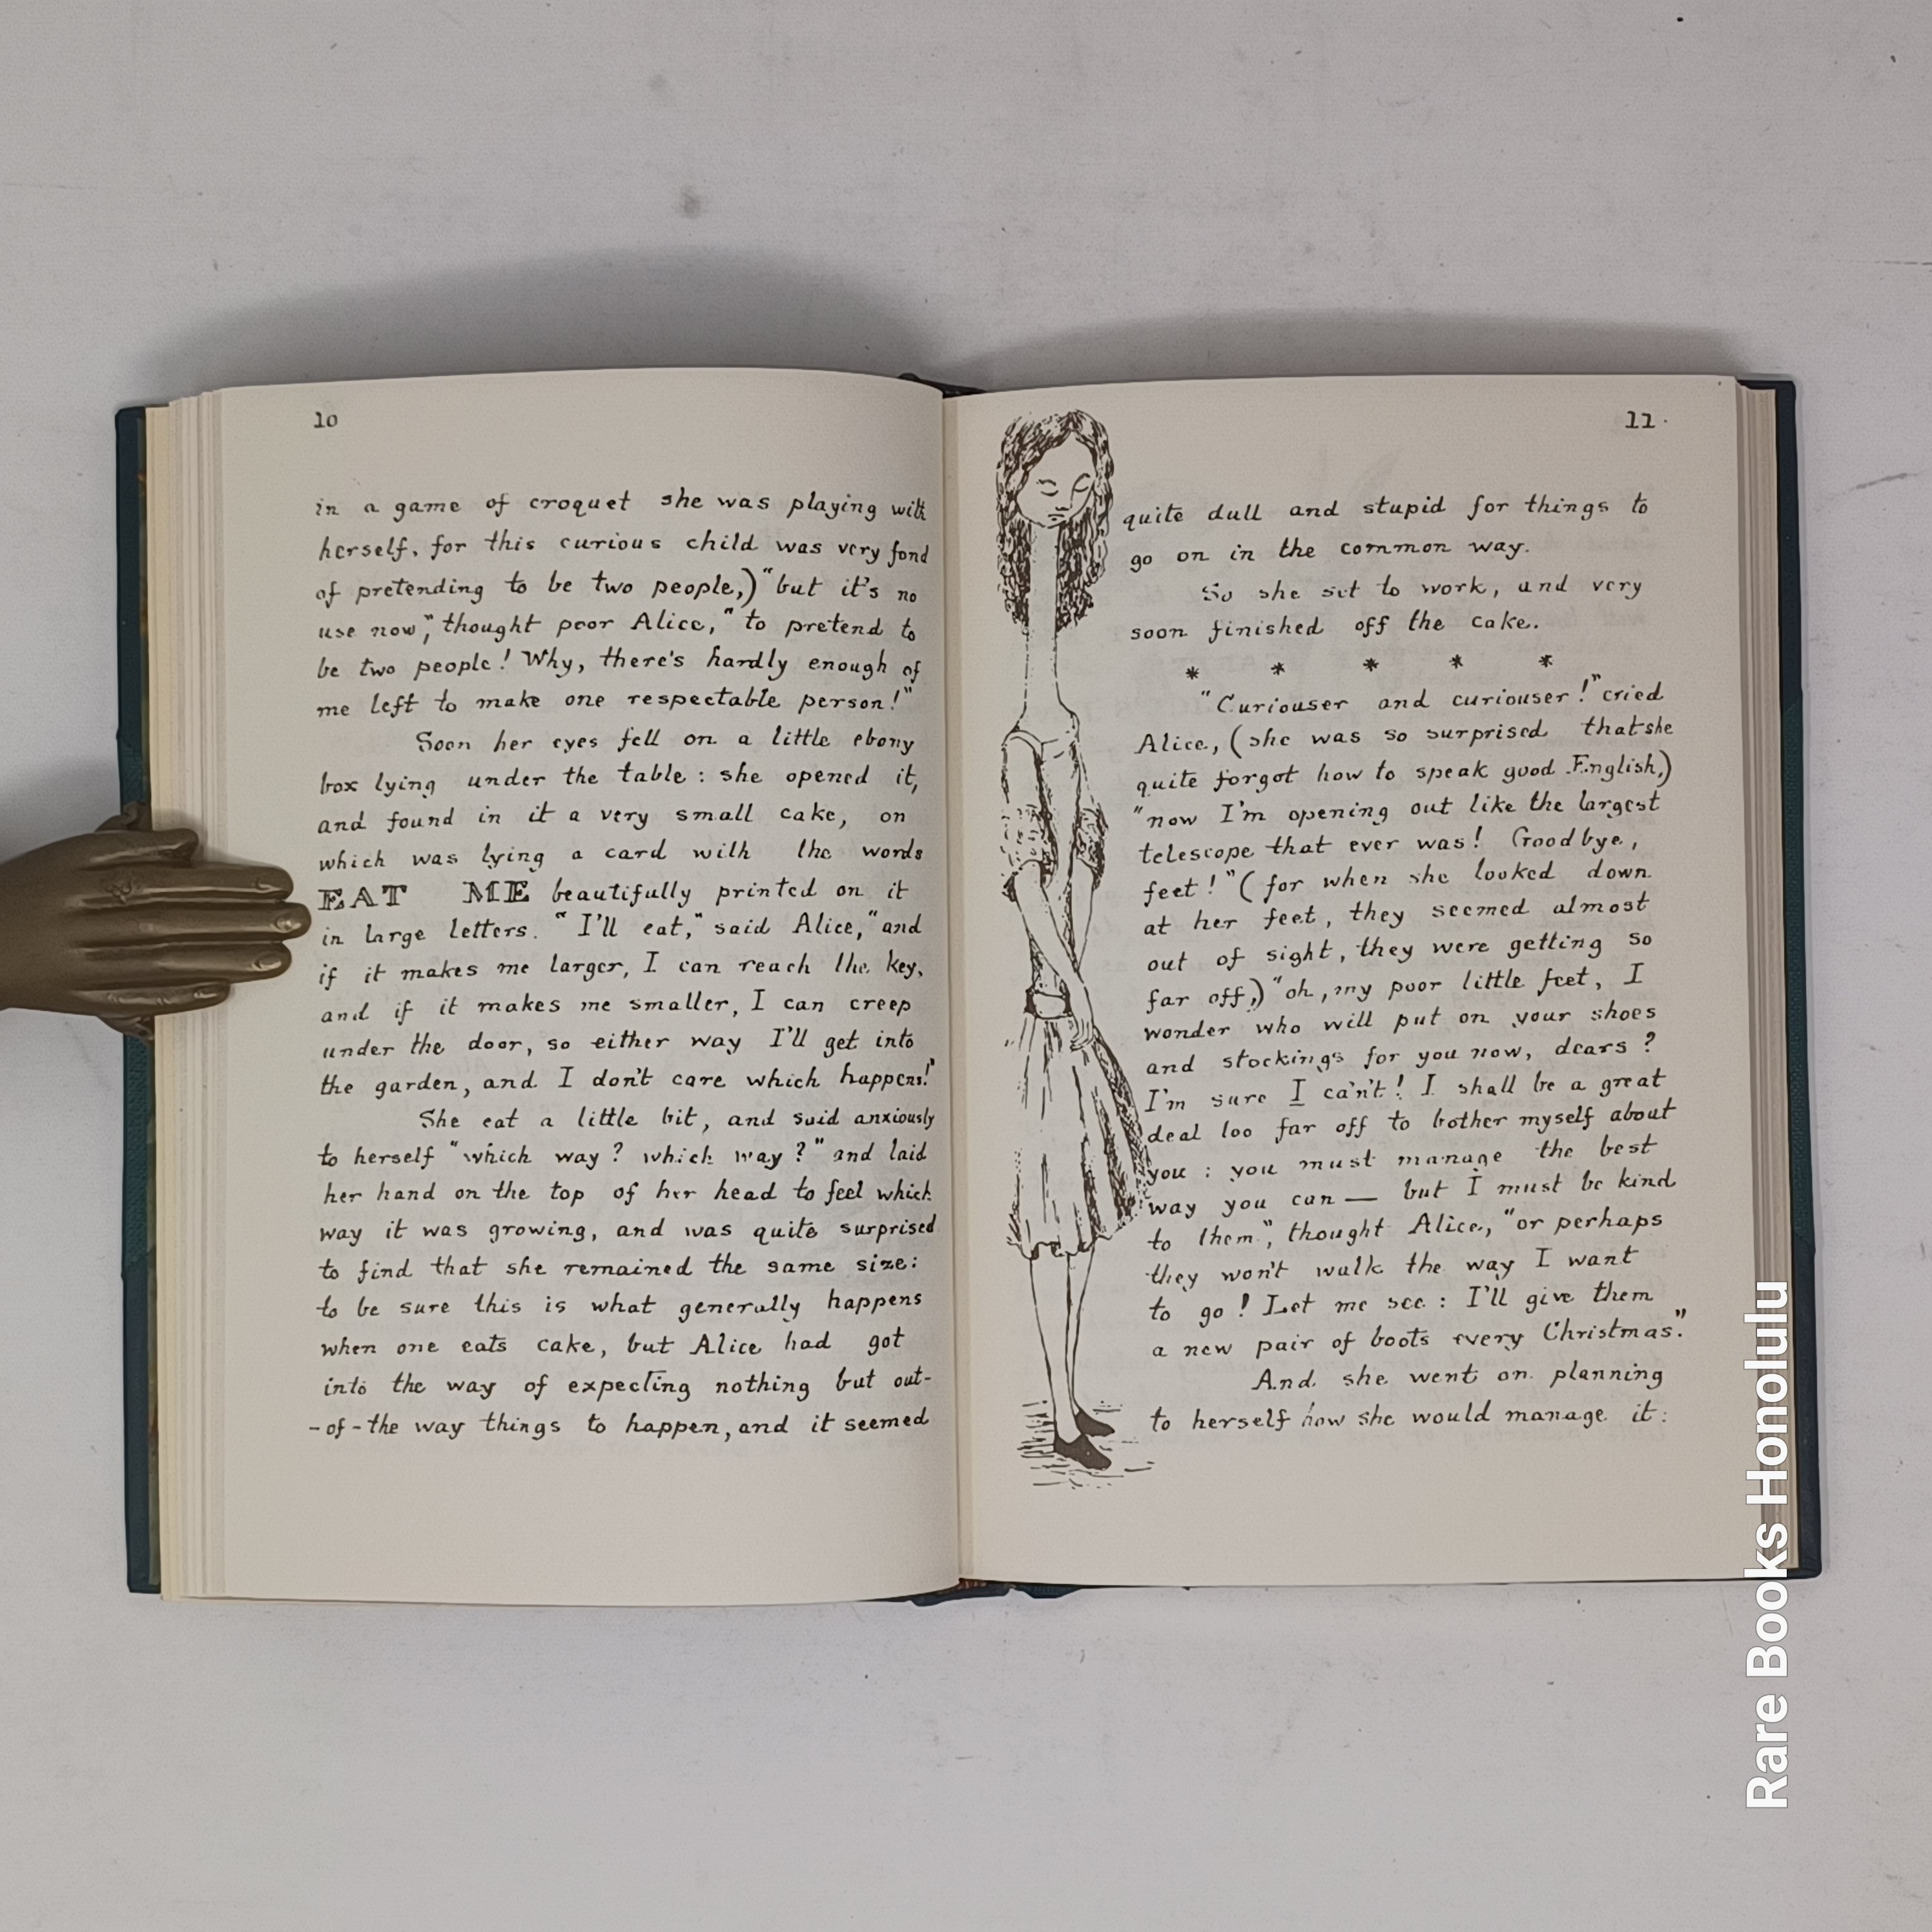 10
in a game of croquet she was playing with
herself, for this curious child was very fond
of pretending to be two people,) "but it's no
use now," thought poor Alice, "to pretend to
be two people! Why, there's hardly enough of
me left to make one respectable person!"
Soon her eyes fell on a little ebony
box lying under the table: she opened it,
and found in it a very small cake, on
which was lying a card with the words
EAT ME beautifully printed on it
in large letters. "I'll eat," said Alice, "and
if it makes me larger, I can reach the key,
and if it makes me smaller, I can creep
under the door, so either way I'll get into
the garden, and I don't care which happens!"
She eat a little bit, and said anxiously
to herself "which way? which way?" and laid
her hand on the top of her head to feel which
way it was growing, and was quite surprised
to find that she remained the same size:
to be sure this is what generally happens
when one eats cake, but Alice had got
into the way of expecting nothing but out-
-of-the way things to happen, and it seemed
11.
quite dull and stupid for things to
go on in the common way.
So she set to work, and very
soon finished off the cake.
* * * * *
"Curiouser and curiouser!" cried
Alice, (she was so surprised that she
quite forgot how to speak good English,)
"now I'm opening out like the largest
telescope that ever was! Goodbye,
feet!" (for when she looked down
at her feet, they seemed almost
out of sight, they were getting so
far off,) "oh, my poor little feet, I
wonder who will put on your shoes
and stockings for you now, dears?
I'm sure I can't! I shall be a great
deal too far off to bother myself about
you: you must manage the best
way you can — but I must be kind
to them", thought Alice, "or perhaps
they won't walk the way I want
to go! Let me see: I'll give them
a new pair of boots every Christmas."
And she went on planning
to herself how she would manage it:
Rare Books Honolulu